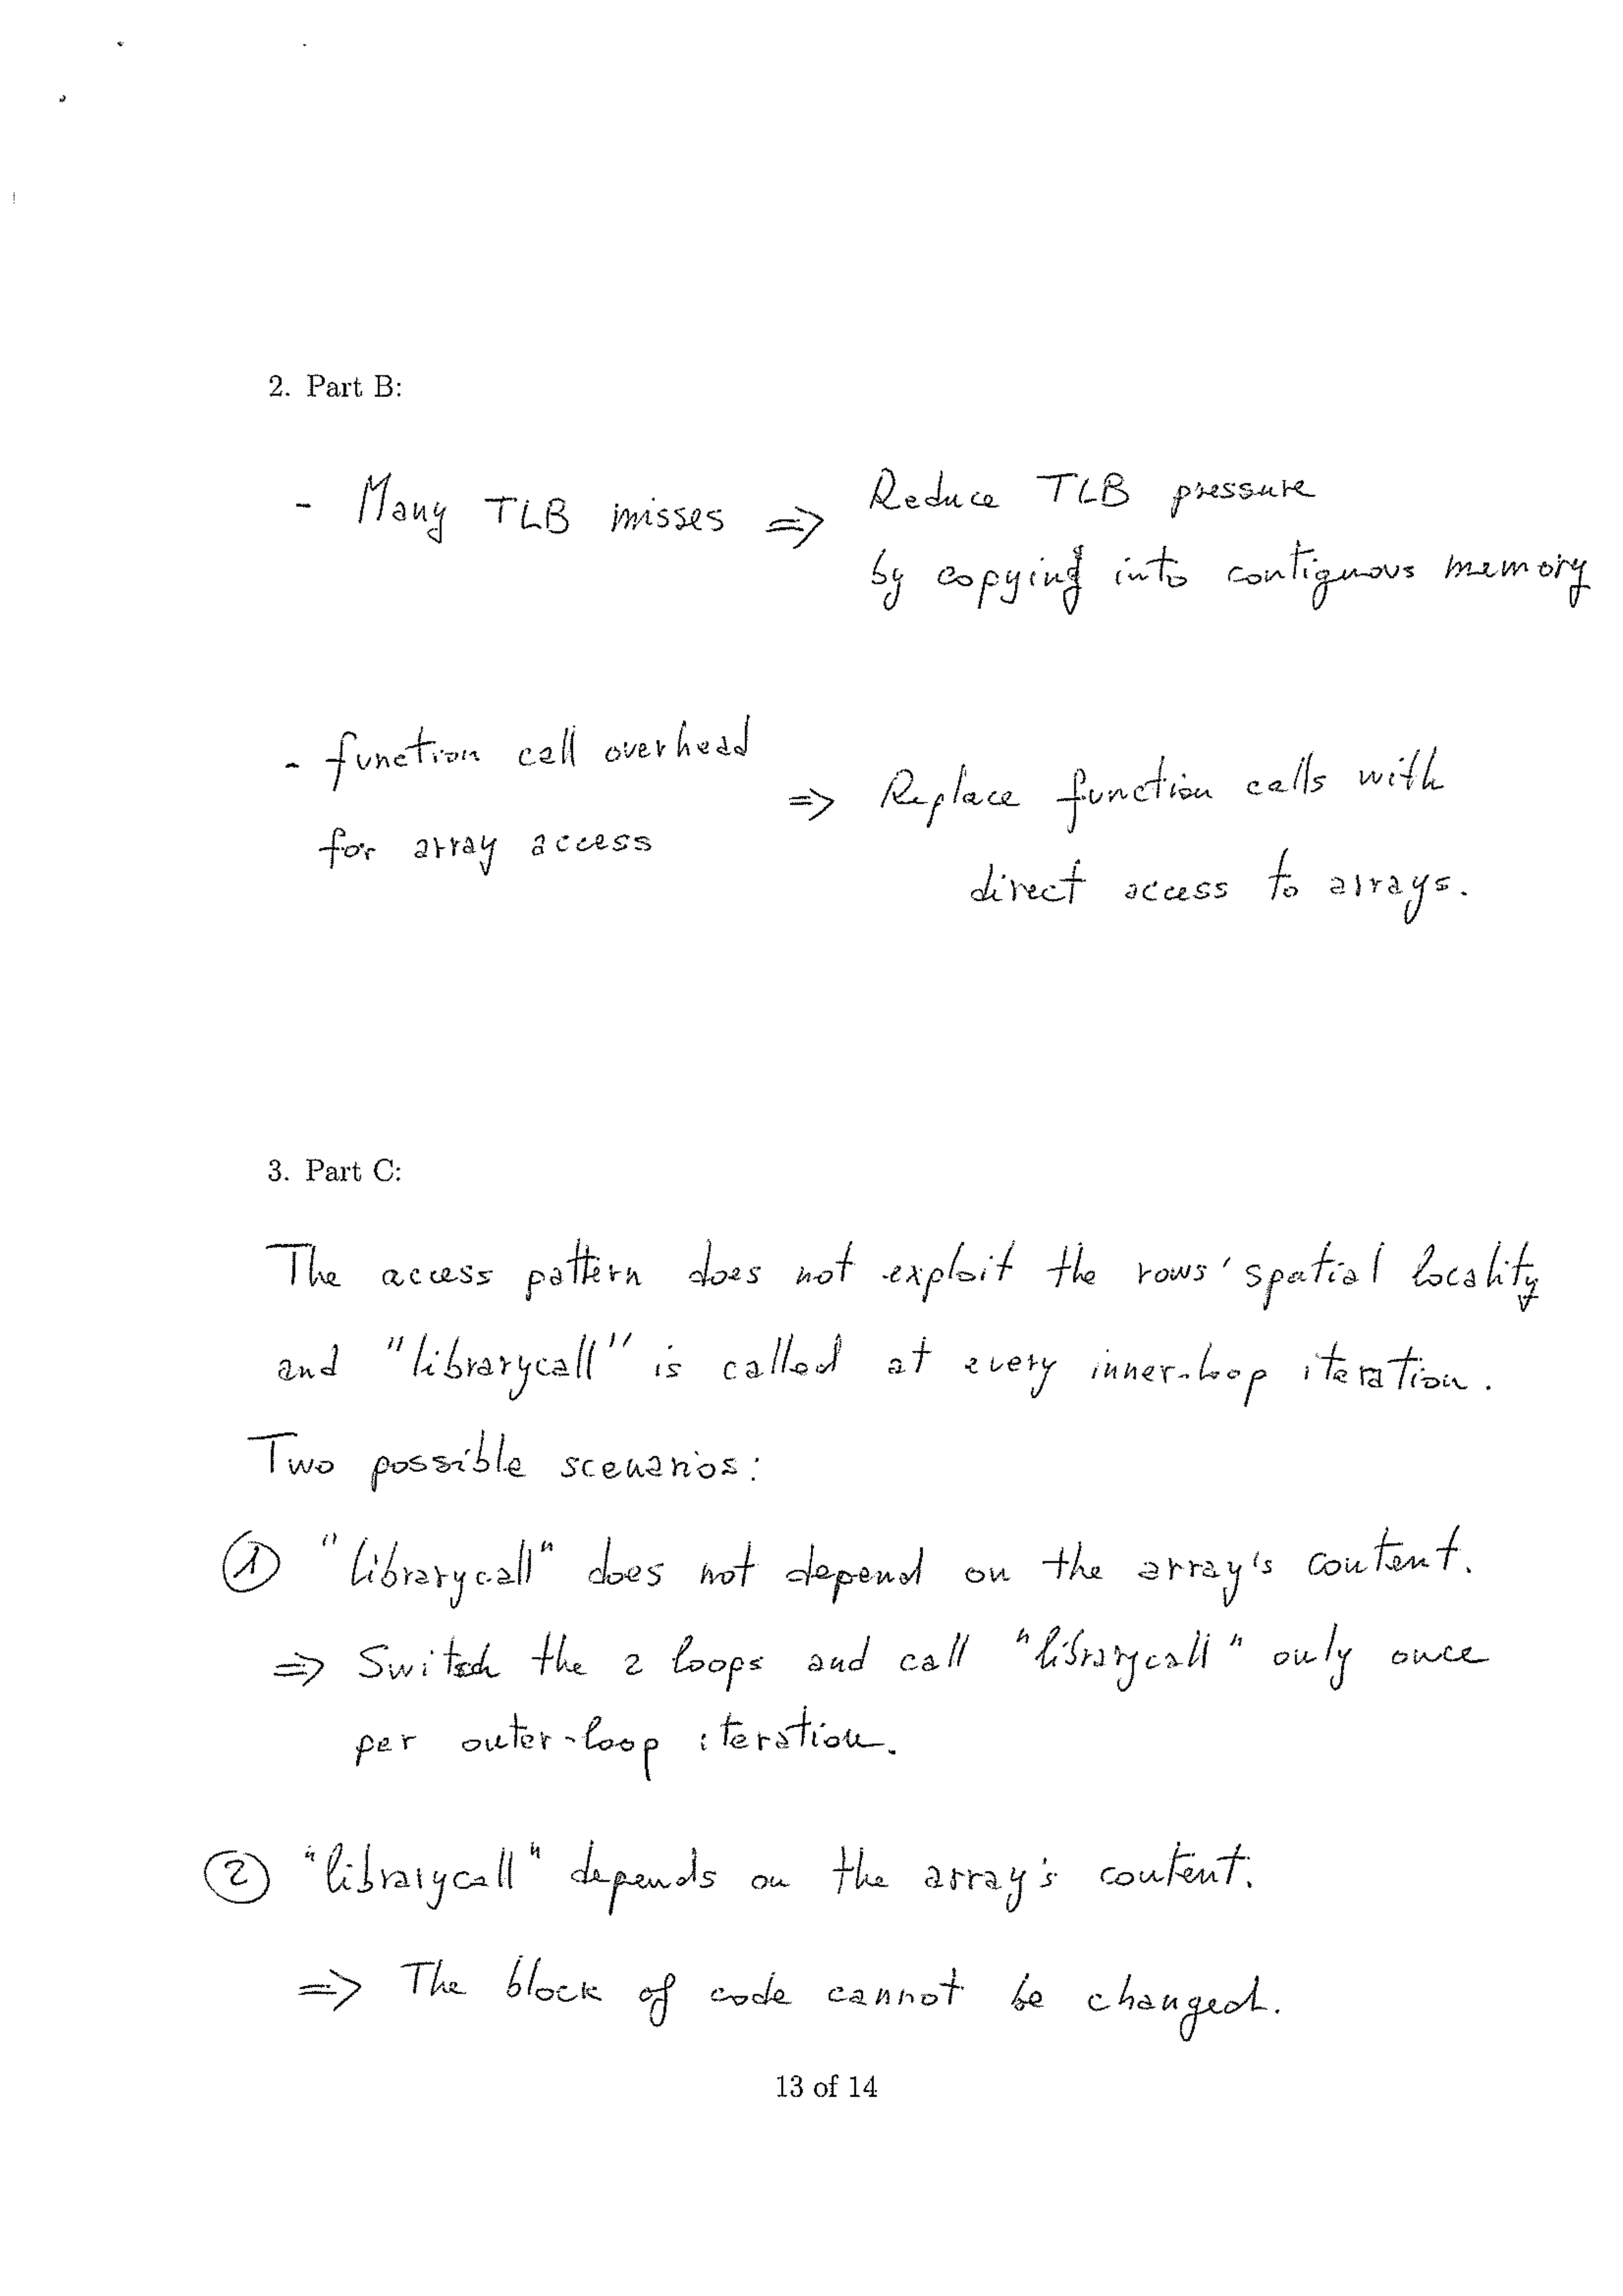 2. Part B:
- Many TLB misses ⇒ Reduce TLB pressure
by copying into contiguous memory
- function call overhead
for array access
⇒ Replace function calls with
direct access to arrays.
3. Part C:
The access pattern does not exploit the rows' spatial locality
and "librarycall" is called at every inner-loop iteration.
Two possible scenarios:
① "librarycall" does not depend on the array's content.
⇒ Switch the 2 loops and call "librarycall" only once
per outer-loop iteration.
② "librarycall" depends on the array's content.
⇒ The block of code cannot be changed.
13 of 14